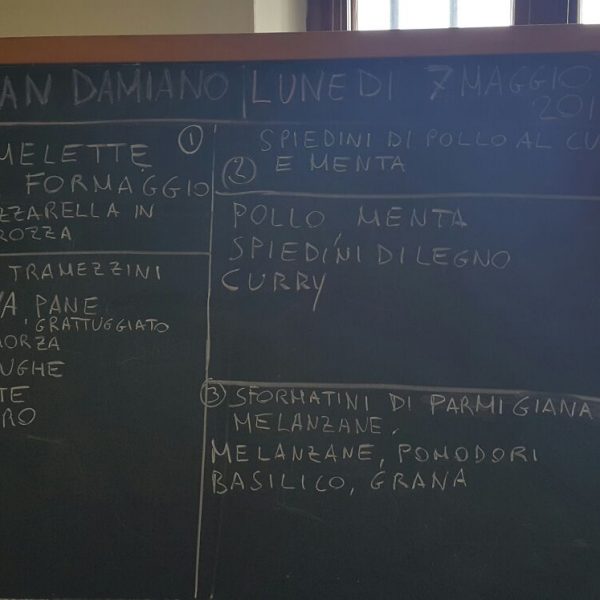 AN DAMIANO LUNEDI 7 MAGGIO
201
1
MELETTE
FORMAGGIO
ZZARELLA IN
ROZZA
TRAMEZZINI
VA PANE
GRATTUGGIATO
MORZA
UGHE
TE
RO
2 SPIEDINI DI POLLO AL CU
E MENTA
POLLO, MENTA
SPIEDINI DI LEGNO
CURRY
3 SFORMATINI DI PARMIGIANA
MELANZANE.
MELANZANE, POMODORI
BASILICO, GRANA